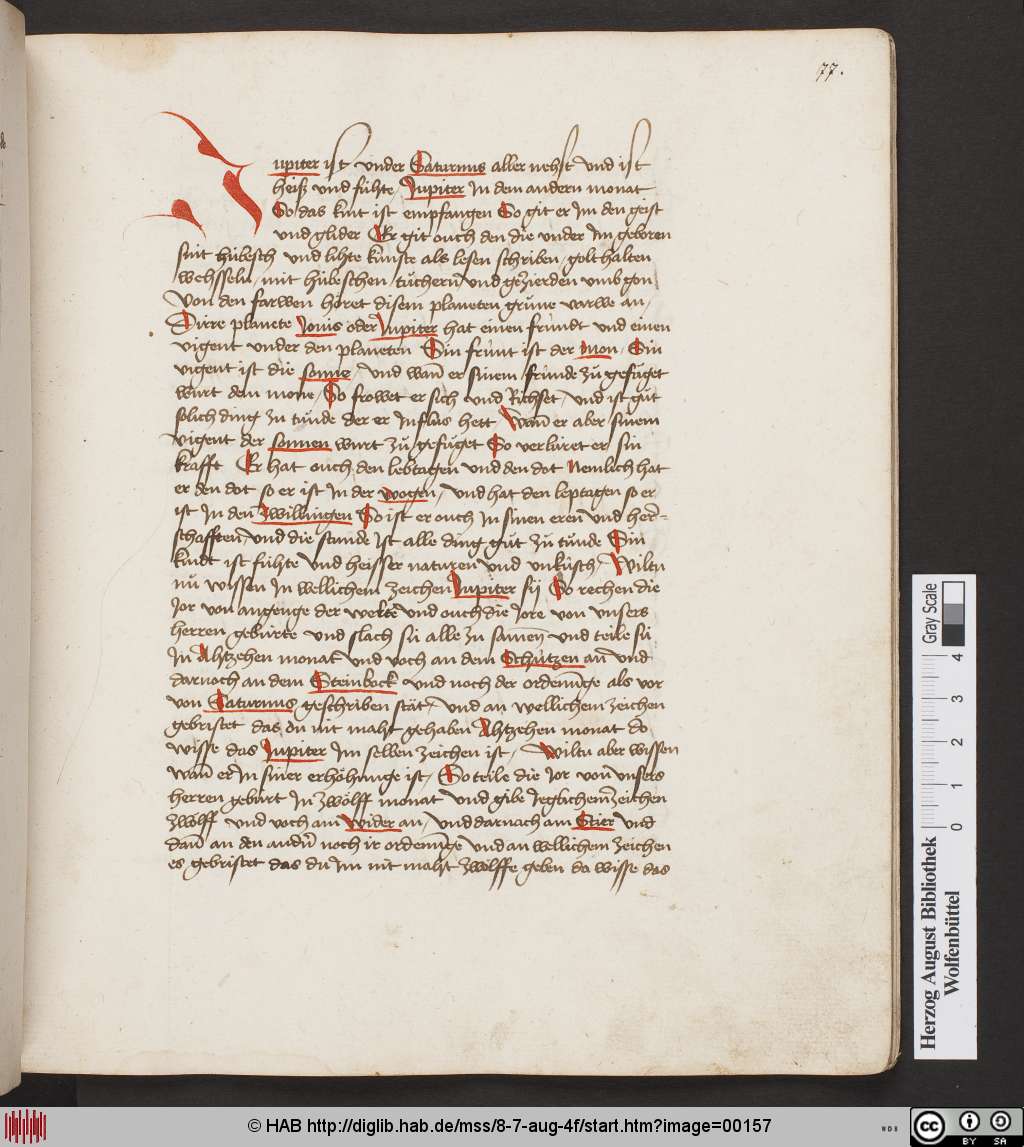 77.
Iupiter ist vnder Saturnus aller nehst vnd ist
heiß vnd fühte, Jupiter In dem andern monat
So das kint ist empfangen So git er Im den geist
vnd glider Er git ouch den die vnder Im geboren
sint hübesch vnd lihte künste als lesen schriben, golt halten
wehsseln, mit hübeschen tüchern vnd gezierden vmb gon
Von den farwen höret disem planeten grüne varwe an,
Dirre planete Jouis oder Jupiter hat einen fründt vnd einen
vigent vnder den planeten Sin frünt ist der mon, Sin
vigent ist die sonne, vnd wañ er sinem fründe zů gefüget
wurt dem mone, So frowet er sich vnd Richset, vnd ist gůt
solich ding zu tůnde der er Influs hett, Wañ er aber sinem
vigent der sonnen wurt zů gefüget So verlüret er sin
krafft Er hat ouch den lebtagen vnd den dot Nemlich hat
er den dot so er ist In der wogen, vnd hat den leptagen so er
ist In den Zwillingen So ist er ouch In sinen eren vnd her=
schafften vnd die stunde Ist alle ding gůt zů tůnde Sin
kindt ist fühte vnd heisser naturen vnd vnküsch, Wiltu
nů wissen In wellichem zeichen Jupiter sij So rechen die
Jor von angenge der welte vnd ouch die Jore von vnsers
herren gebürte vnd slach sü alle zu samen vnd teile sü
In Ahtzehen monat vnd voch an dem Schützen an vnd
darnoch an dem Steinbock vnd noch der ordenũge als vor
von Saturnus geschriben stät, vnd an wellichem zeichen
gebristet das du nit maht gehaben Ahtzehen monat do
wisse das Jupiter Im selben zeichen ist, Wiltu aber wissen
wañ er In siner erhöhunge ist, So teile die Jor von vnsers
herren geburt In zwölff monat vnd gibe Jeglichem zeichen
zwölff vnd voch am Wider an, vnd darnach am Stier vnd
dañ an den andn̄ noch ir ordenũge vnd an wellichem zeichen
es gebristet das du Im nit maht zwölffe geben da wisse das
Gray Scale
0 1 2 3 4
Herzog August Bibliothek
Wolfenbüttel
© HAB http://diglib.hab.de/mss/8-7-aug-4f/start.htm?image=00157
WDB
cc BY SA